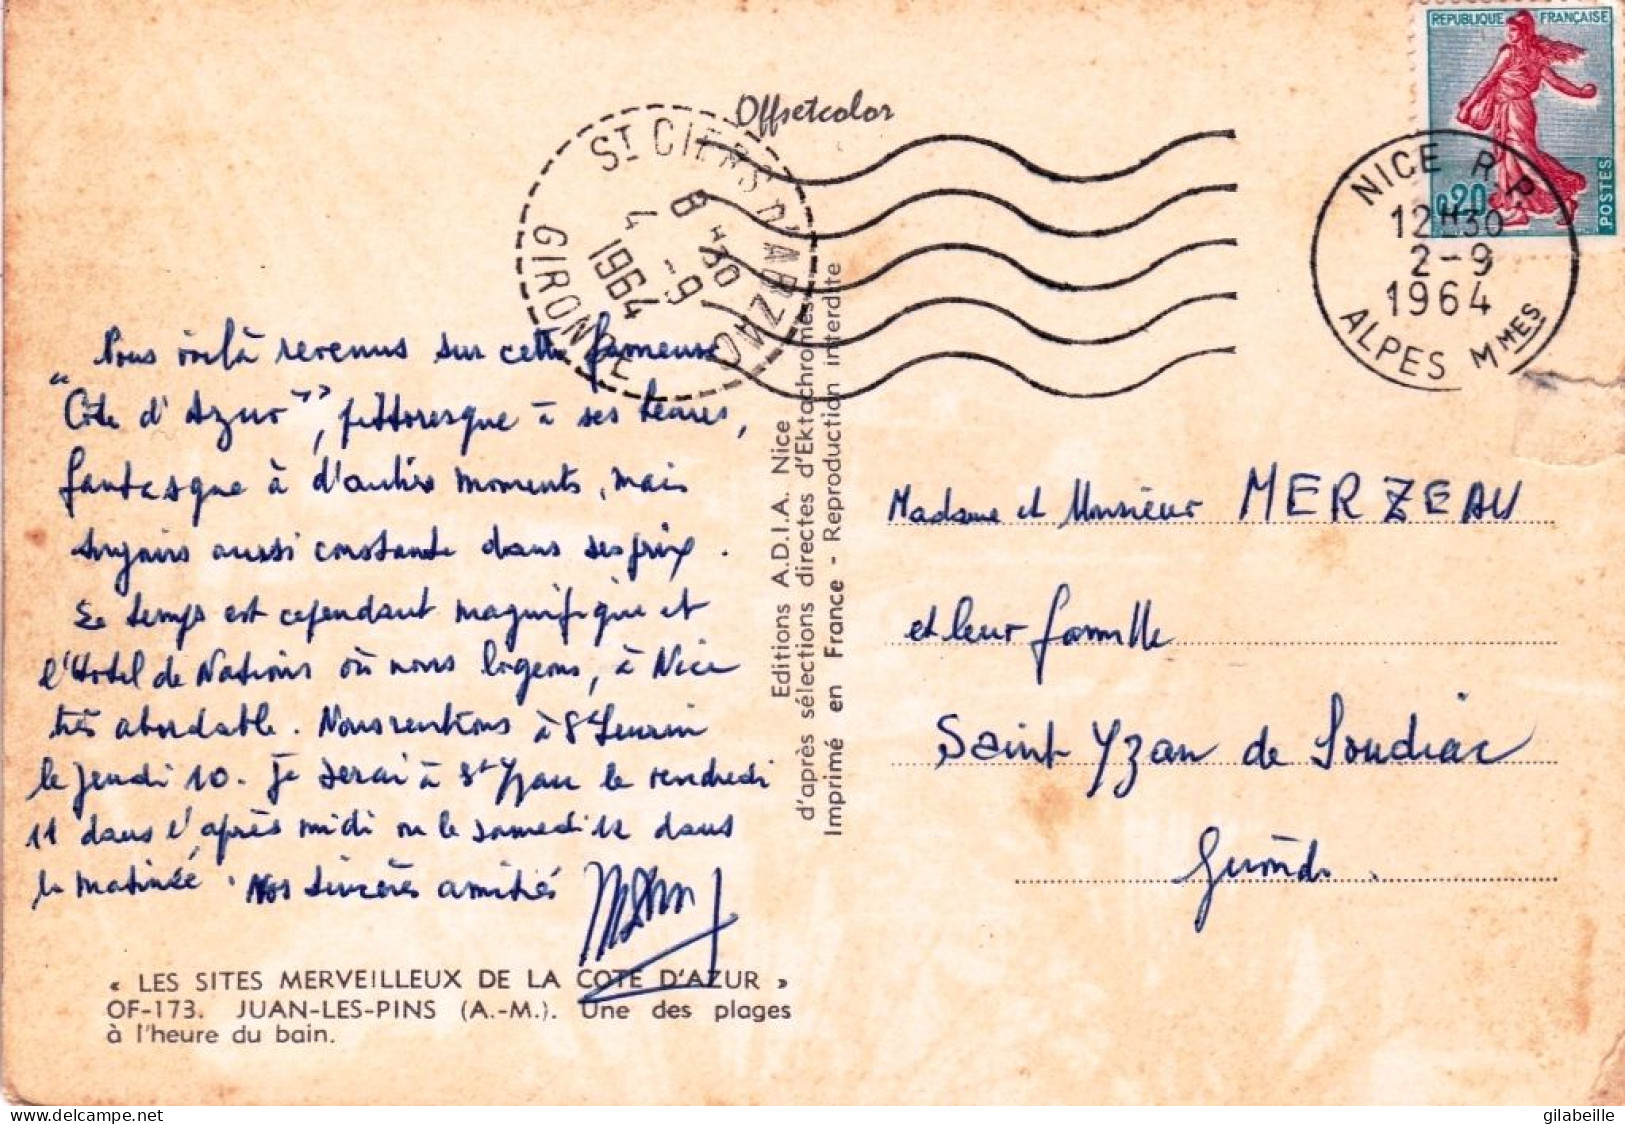 Offsetcolor
REPUBLIQUE FRANÇAISE
0,20
POSTES
NICE R.P.
12H30
2-9
1964
ALPES MMES
ST CIERS D'ABZAC
8H30
4-9
1964
GIRONDE
Nous voilà revenus sur cette fameuse
"Côte d'Azur", pittoresque à ses heures,
fantasque à d'autres moments, mais
toujours aussi constante dans ses prix.
Le temps est cependant magnifique et
l'Hotel de Nations où nous logeons, à Nice
très abordable. Nous rentrons à St Seurin
le jeudi 10. Je serai à St Yzan le vendredi
11 dans l'après midi ou le samedi 12 dans
la matinée. Nos sincères amitiés
Editions A.D.I.A. Nice
d'après sélections directes d'Ektachromes
Imprimé en France - Reproduction interdite
Madame et Monsieur MERZEAU
et leur famille
Saint-Yzan de Soudiac
Gironde.
« LES SITES MERVEILLEUX DE LA COTE D'AZUR »
OF-173. JUAN-LES-PINS (A.-M.). Une des plages
à l'heure du bain.
delcampe.net
gilabeille